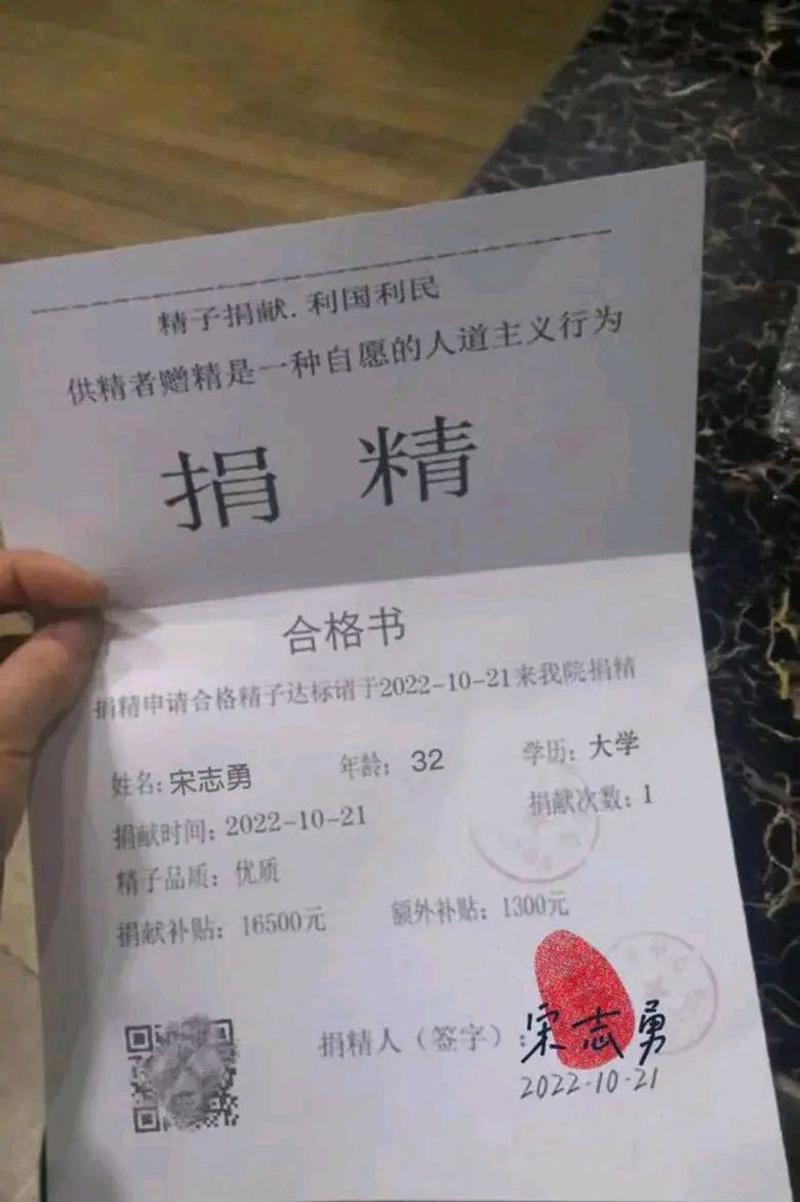 精子捐献.利国利民
供精者赠精是一种自愿的人道主义行为
捐 精
合格书
捐精申请合格精子达标请于2022-10-21来我院捐精
姓名:宋志勇 年龄: 32 学历: 大学
捐献时间: 2022-10-21 捐献次数: 1
精子品质: 优质
捐献补贴: 16500元 额外补贴: 1300元
捐精人(签字): 宋志勇
2022-10-21